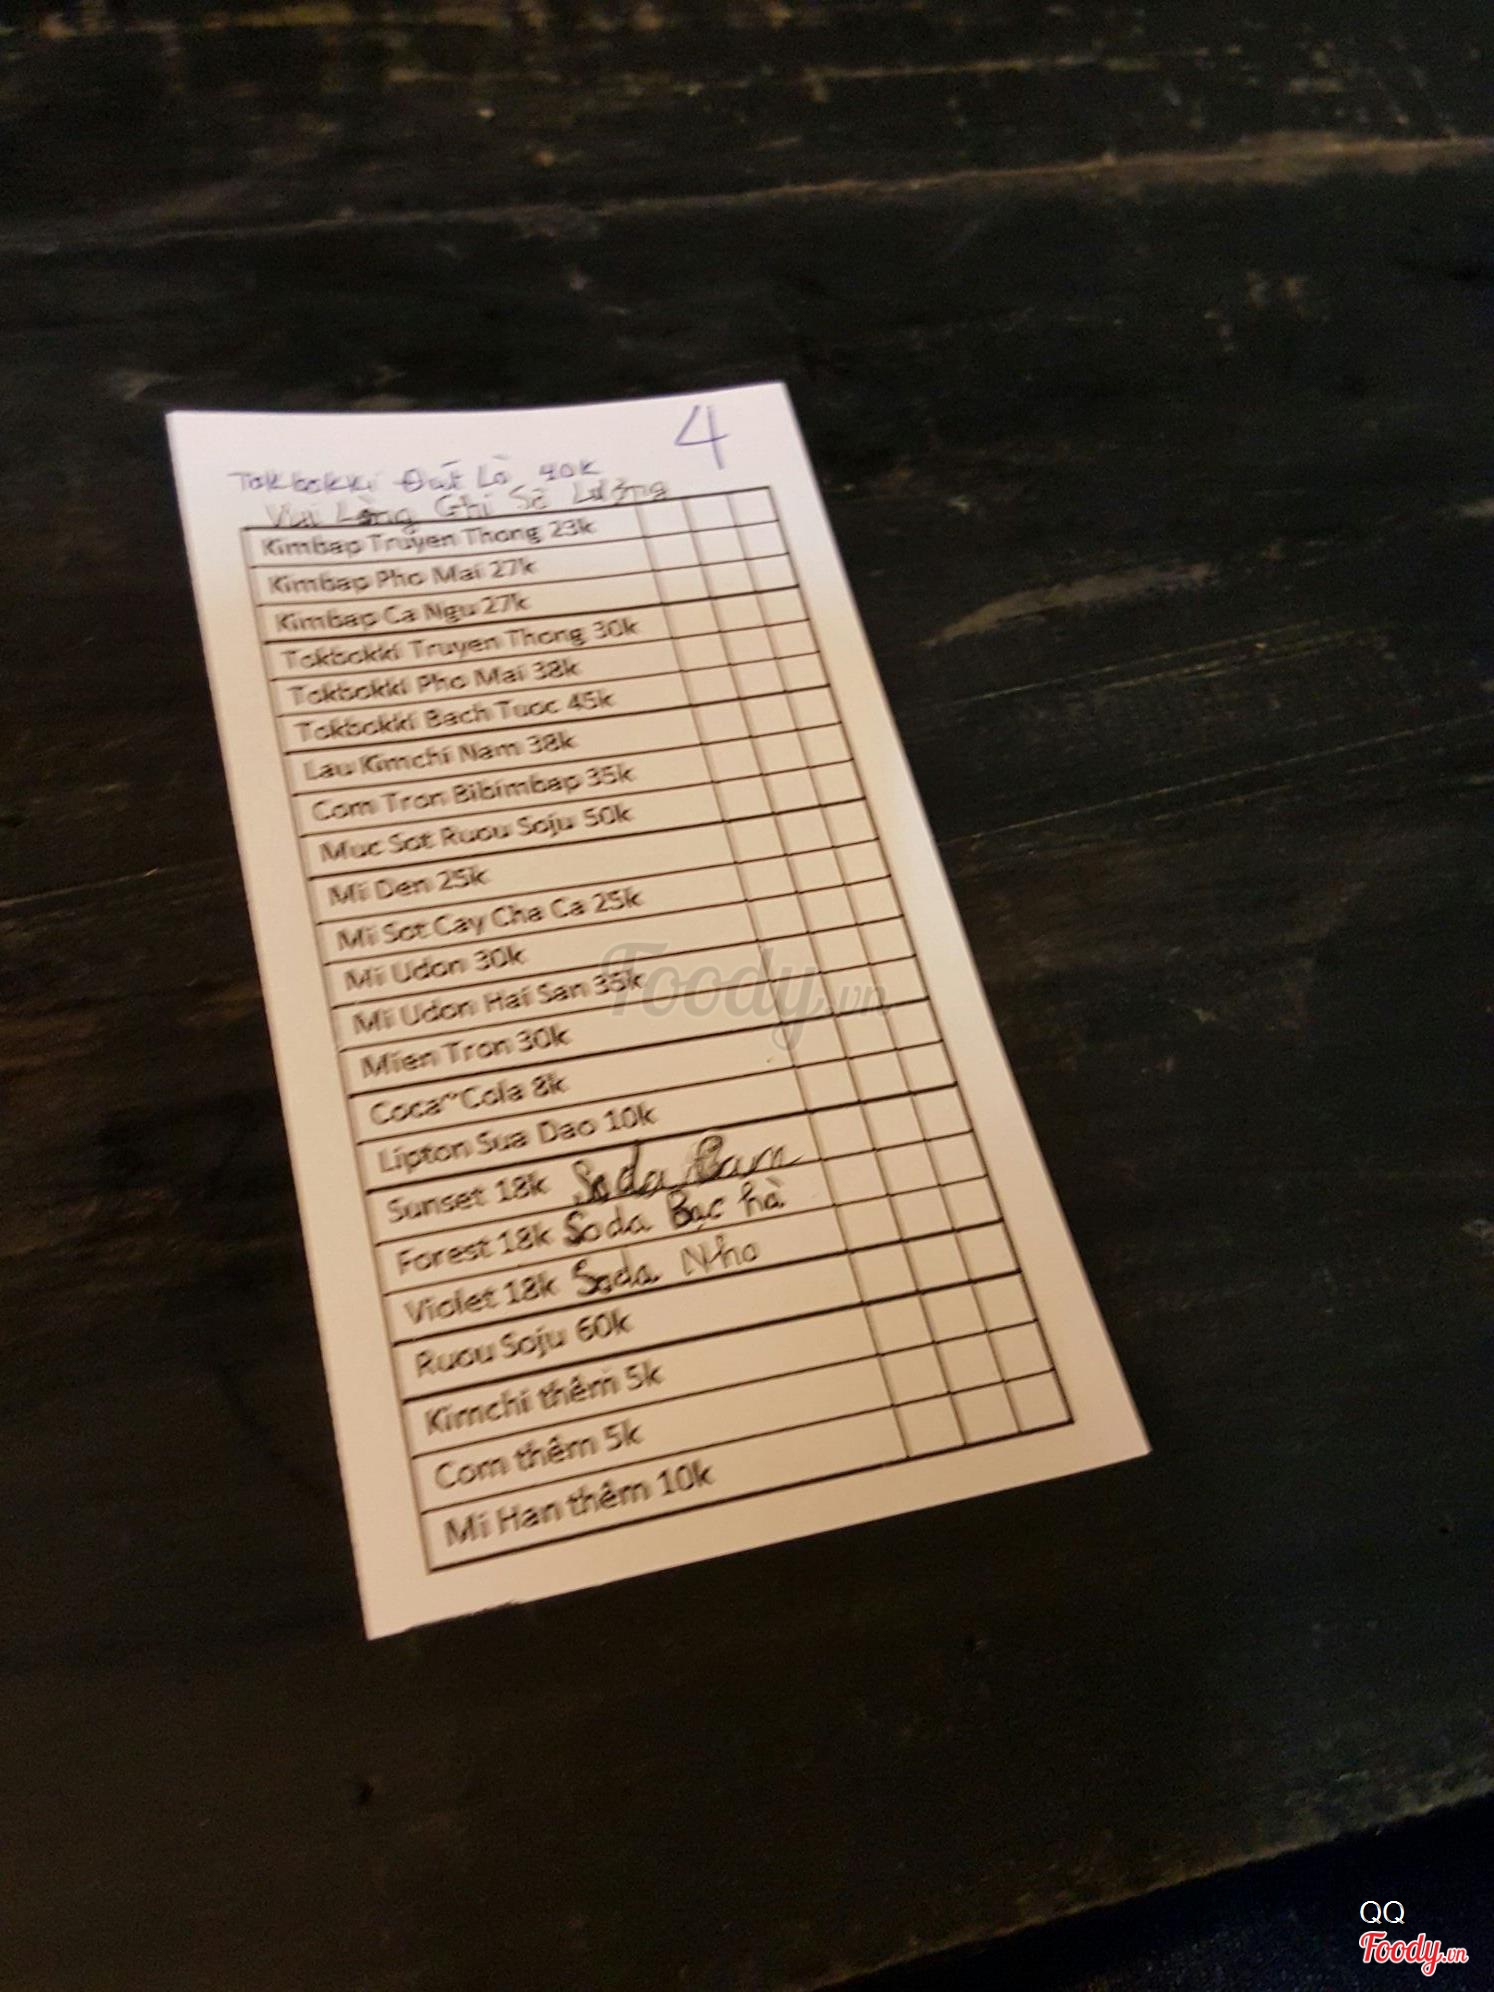 4
Tokbokki Đút Lò 40k
Vui Lòng Ghi Số Lượng
Kimbap Truyen Thong 23k
Kimbap Pho Mai 27k
Kimbap Ca Ngu 27k
Tokbokki Truyen Thong 30k
Tokbokki Pho Mai 38k
Tokbokki Bach Tuoc 45k
Lau Kimchi Nam 38k
Com Tron Bibimbap 35k
Muc Sot Ruou Soju 50k
Mi Den 25k
Mi Sot Cay Cha Ca 25k
Mi Udon 30k
Mi Udon Hai San 35k
Mien Tron 30k
Coca~Cola 8k
Lipton Sua Dao 10k
Sunset 18k Soda Cam
Forest 18k Soda Bạc hà
Violet 18k Soda Nho
Ruou Soju 60k
Kimchi thêm 5k
Com thêm 5k
Mi Han thêm 10k
Foody.vn
QQ
Foody.vn